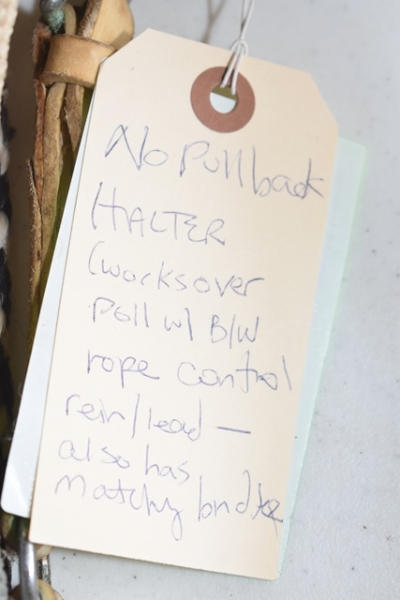 No Pullback
HALTER
(works over
poll w/ B/W
rope control
rein/lead —
also has
matchy